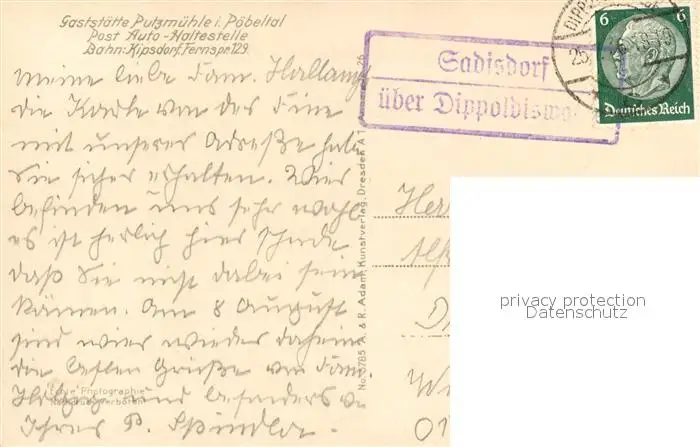 Gaststätte Putzmühle i. Pöbeltal
Post Auto-Haltestelle
Bahn: Kipsdorf. Fernspr. 129.
Sadisdorf
über Dippoldiswa
DIPPO
25.
6
6
Deutsches Reich
meine liebe Fam.
die Karte von der
mit unserer Adresse habe
Sie sicher erhalten. Wir
befinden uns sehr wohl
es ist herlich hier schade
daß Sie nicht dabei sein
können. Am 8 August
sind wir wieder daheim
die besten Grüße von Fam.
und besonders v
Ihres P. Spindler.
Echte Photographie
No. 3785 A. & R. Adam, Kunstverlag, Dresden A 1
26
Her
privacy protection
Datenschutz